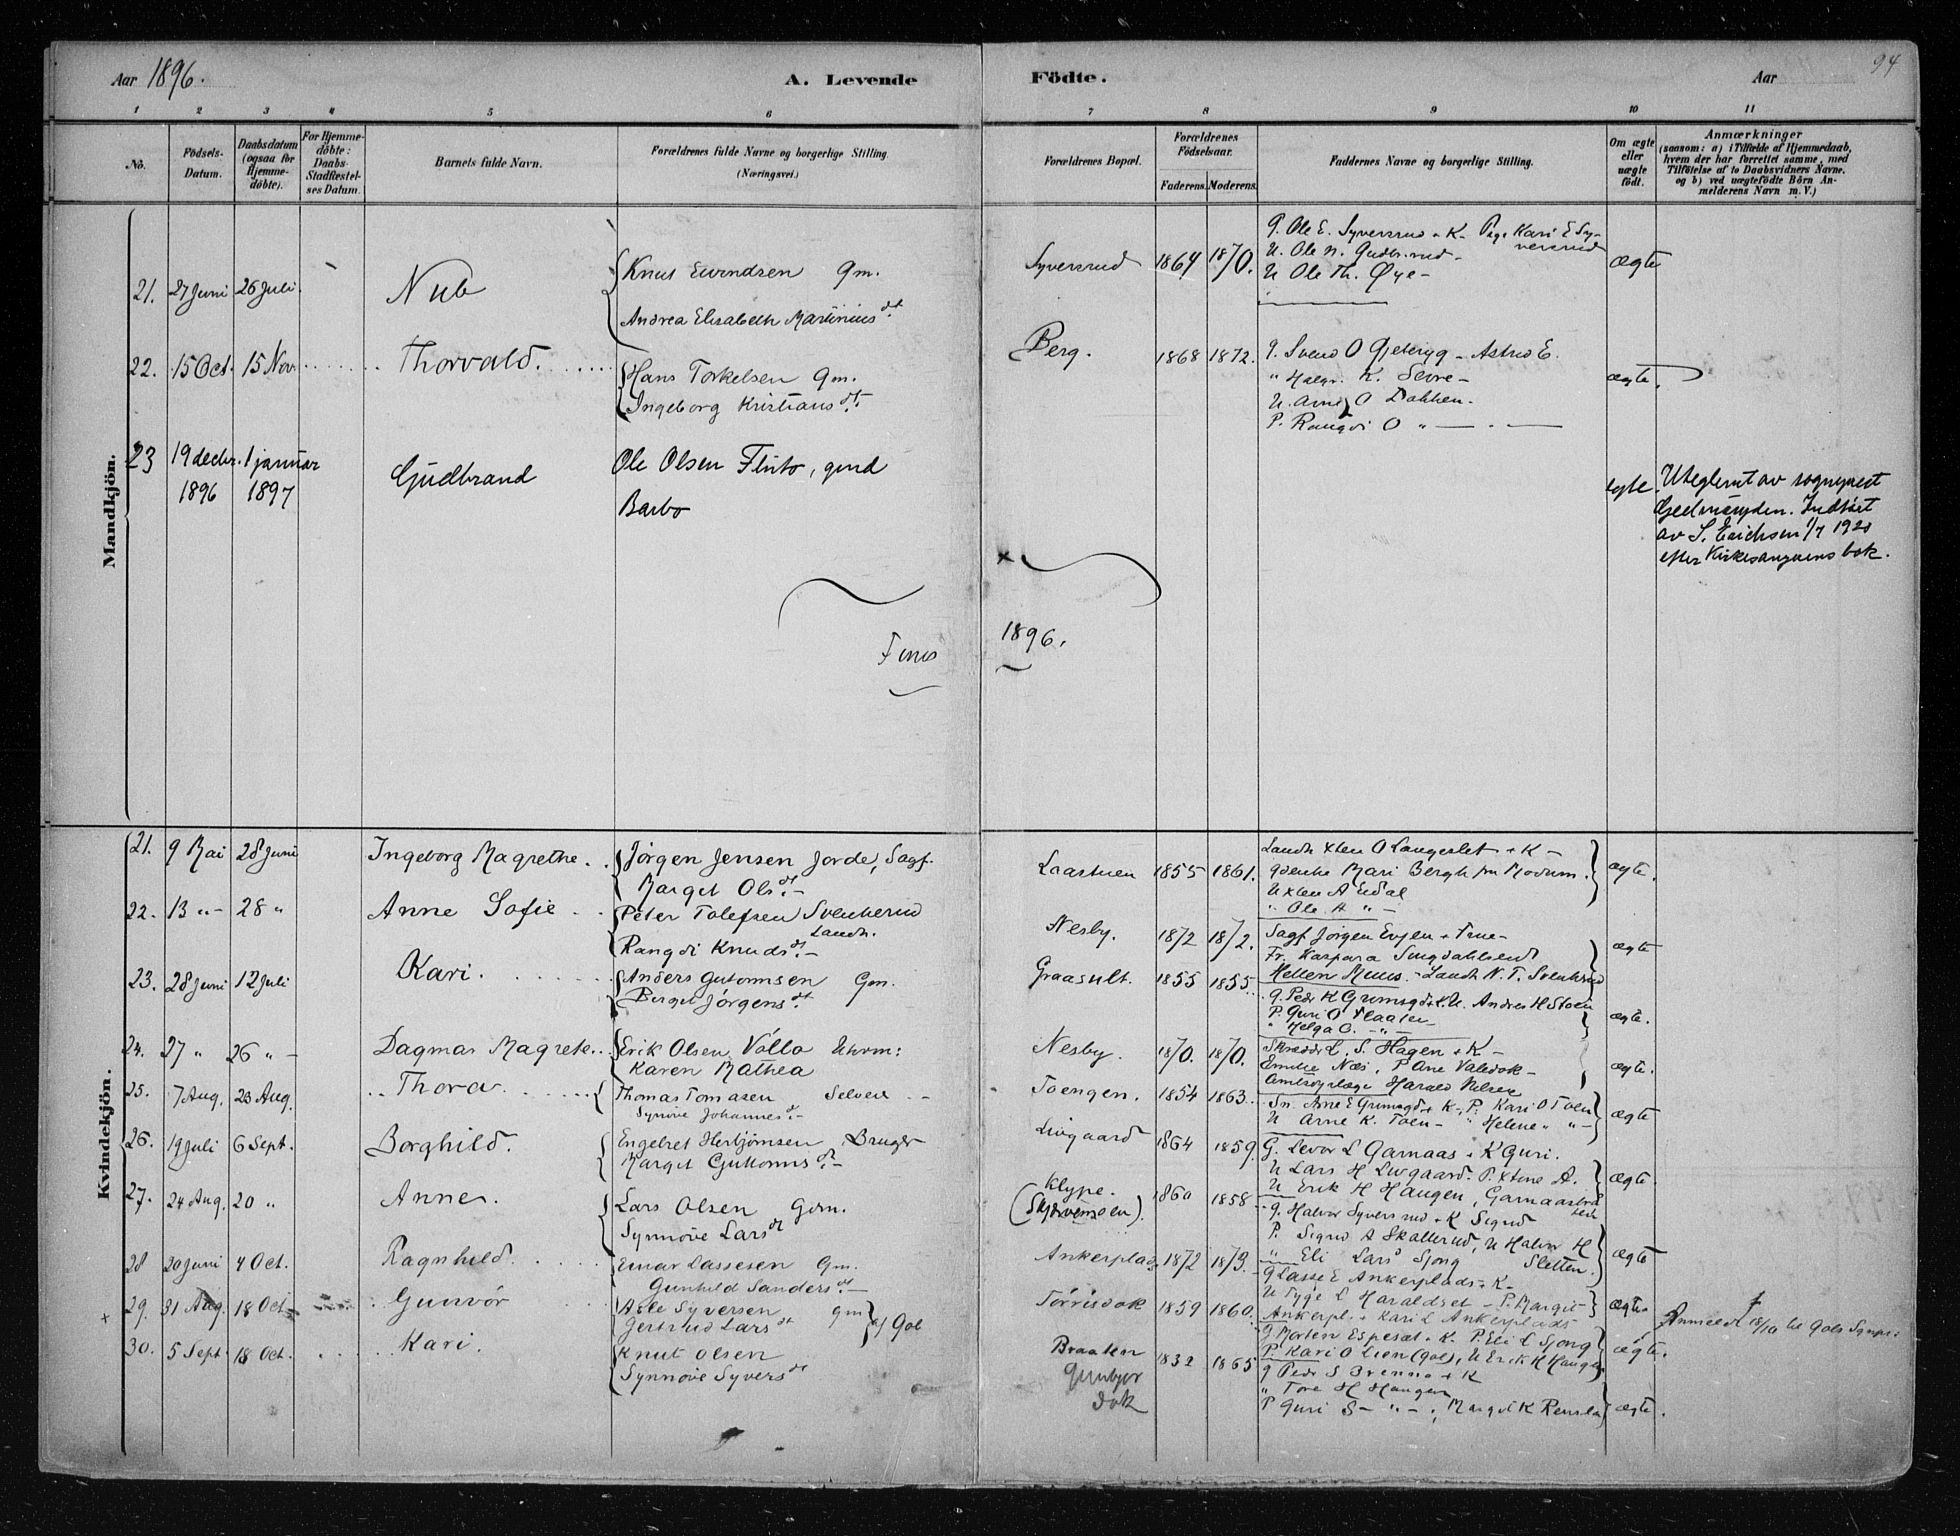 Aar 1896.
A. Levende Födte.
Aar
94
1 2 3 4 5 6 7 8 9 10 11
No.
Födsels-Datum.
Daabsdatum (ogsaa for Hjemmedöbte).
For Hjemmedöbte: Daabs-Stadfæstelses Datum.
Barnets fulde Navn.
Forældrenes fulde Navne og borgerlige Stilling. (Næringsvei.)
Forældrenes Bopæl.
Forældrenes Födselsaar.
Faderens. Moderens.
Faddernes Navne og borgerlige Stilling.
Om ægte eller uægte födt.
Anmærkninger
(saasom: a) i Tilfælde af Hjemmedaab,
hvem der har forrettet samme, med
Tilföielse af to Daabsvidners Navne.
og b) ved uægtefödte Börn An-
melderens Navn m. V.)
Mandkjön.
21. 27 Juni 26 Juli. Nub Knut Eivindsen Gm.
Andrea Elisabeth Martinius dt.
Syversrud 1864 1870.
G. Ole E. Syversrud + K. Pige Kari E Sy-
versrud
U. Ole N. Gudbr.rud -
U Ole Th. Øye -
ægte
22. 15 Oct. 15 Nov. Thorvald. Hans Torkelsen Gm.
Ingeborg Kristians dt.
Berg. 1868 1872.
G. Svend O Gjeteryg - Astrid E.
" Halgr. K. Sevre -
U. Arne O Dokken.
P. Rangdi O " -
ægte.
23 19 decbr. 1896 1 januar 1897 Gudbrand Ole Olsen Fluto, gmd
Barbo
ægte.
Uteglemt av sogneprest
Gjedmundsen. Indført
av S. Erichsen 1/7 1920
efter Kirkesangerens bok.
Finis 1896.
Kvindekjön.
21. 9 Mai 28 Juni Ingeborg Magrethe. Jørgen Jensen Jorde, Sagf.
Marget Ols dt. -
Laastuen 1855 1861.
Landh Xten O Langeslet + K -
Gdenke Mari Bergh fra Modum.
U Xten A Eidal
" Ole A " -
ægte.
22. 13 " - 28 " Anne Sofie Peter Tolefsen Svenkerud
Landh.
Rangdi Knuds dt. -
Nesby. 1872 1872.
Sagf Jørgen Evjen + Frue -
Fr. Kaspara
Hellen - Landh N. T. Svenkerud
ægte
23. 28 Juni 12 Juli Kari. Anders Guttormsen Gm.
Berget Jørgens dt
Graasult. 1855 1855.
G. Peder K Grimsgd + K. U. Andres H Stoen
P. Guri O Plaaten
" Helga O. - " -
ægte.
24. 27 " 26 " - Dagmar Magrete.. Erik Olsen Vollo
Karen Mathea
Nesby. 1870. 1870.
Skrædder L. S. Hagen + K -
Emilie Næs, P Ane Valdok -
Amtssygelæge Harald Nilsen
ægte.
25. 7 Aug. 23 Aug. Thora. Thomas Tomasen Selveier
Synøve Johannes dt. -
Toengen. 1854 1863.
Sn. Arne E Grimsgd + K -, P. Kari O Toen
U Arne K. Toen - " Helene " " -
ægte
26. 19 Juli 6 Sept. Borghild. Engebret Herbjørnsen Bruger
Marget Guttorms dt. -
Livgaard 1864 1859.
G. Levor L Garnaas + K Guri.
U Lars H Livgaard. P. Xtine A.
U Erik H Haugen, Garnaasträ
ægte.
27. 24 Aug. 20 " Anne. Lars Olsen Gdm.
Synnøve Lars dt
Klype.
1860 1858
G. Halvor Syversrud + K Sigrid
P. Sigrid A Skallerud, U Halvor H
" Eli Lars Sjong Sletten.
ægte
28 20 Juni 4 Oct. Ragnhild. Einar Lassesen Gm.
Gunhild Sanders dt. -
Ankerplads 1872 1873.
G Lasse E Ankerplads + K -
U Tyge L Haraldset - P. Margit -
Ankerpl. + Kari L Ankerplads
ægte.
x 29. 31 Aug. 18 Oct. Gunvor Asle Syversen Gm
Gertrud Lars dt af Gol
Torrisdok 1859 1860.
G Morten Espeset + K. P. Eli L Sjong
P. Kari O Lien (Gol), U Erik H Haugen
ægte.
Anmeldt 18/10 til Gols Sognepr.
30. 5 Sept 18 Oct. Kari. Knut Olsen
Synnøve Syvers dt
Braaten 1832 1865
Gunbjør
dok
G Peder S Brenno + K
" Tore H Haugen
P Guri S - " - , Margit K Rensla
ægte.